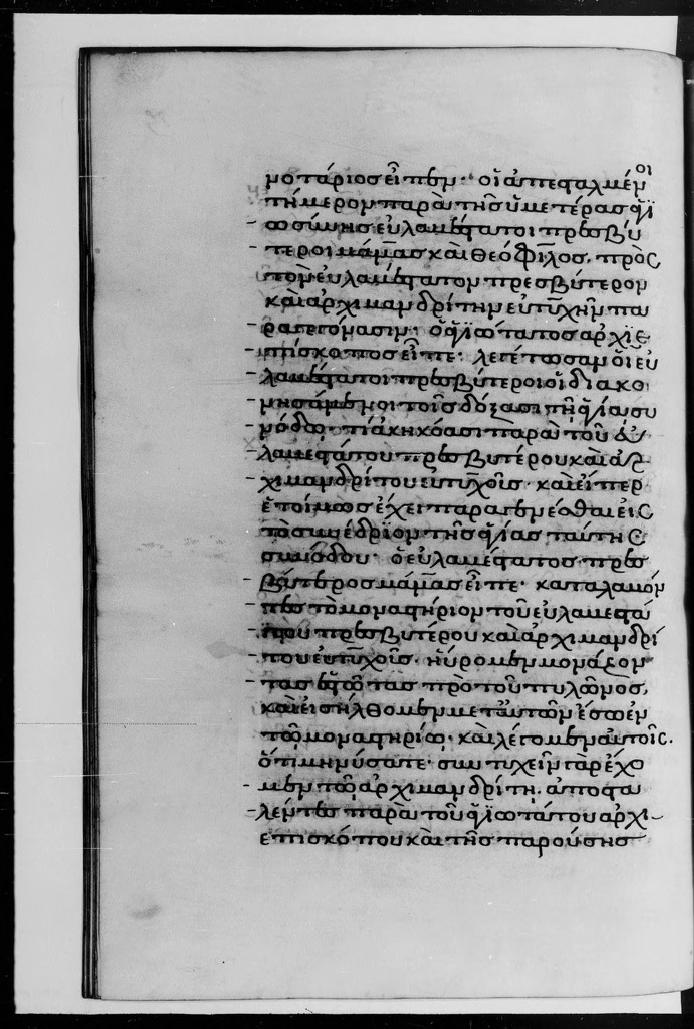 νοτάριος εἶπεν· οἱ ἀπεσταλμένοι
τήμερον παρὰ τῆς ὑμετέρας ἁγι
ωσύνης εὐλαβέστατοι πρεσβύ
τεροι μάμας καὶ θεόφιλος, πρὸς
τὸν εὐλαβέστατον πρεσβύτερον
καὶ ἀρχιμανδρίτην εὐτυχῆν πα
ραγεγόνασιν· ὁ ἁγιώτατος ἀρχιε
πίσκοπος εἶπε· λεγέτωσαν οἱ εὐ
λαβέστατοι πρεσβύτεροι οἱ διακο
νησάμενοι τοῖς δόξασι τῇ ἁγίᾳ συ
νόδῳ· τί ἀκηκόασι παρὰ τοῦ εὐ
λαβεστάτου πρεσβυτέρου καὶ ἀρ
χιμανδρίτου εὐτυχοῦς· καὶ εἴπερ
ἑτοίμως ἔχει παραγενέσθαι εἰς
τὸ συνέδριον τῆς ἁγίας ταύτης
συνόδου· ὁ εὐλαβέστατος πρεσ
βύτερος μάμας εἶπε· καταλαβόν
τες τὸ μοναστήριον τοῦ εὐλαβεστά
του πρεσβυτέρου καὶ ἀρχιμανδρί
του εὐτυχοῦς· ηὕρομεν μονάζον
τας ἑστῶτας πρὸ τοῦ πυλῶνος,
καὶ εἰσήλθομεν μετ' αὐτῶν ἔσω ἐν
τῷ μοναστηρίῳ· καὶ λέγομεν αὐτοῖς.
ὅτι μηνύσατε· συντυχεῖν γὰρ ἔχο
μεν τῷ ἀρχιμανδρίτῃ. ἀποστα
λέντες παρὰ τοῦ ἁγιωτάτου ἀρχι
επισκόπου καὶ τῆς παρούσης